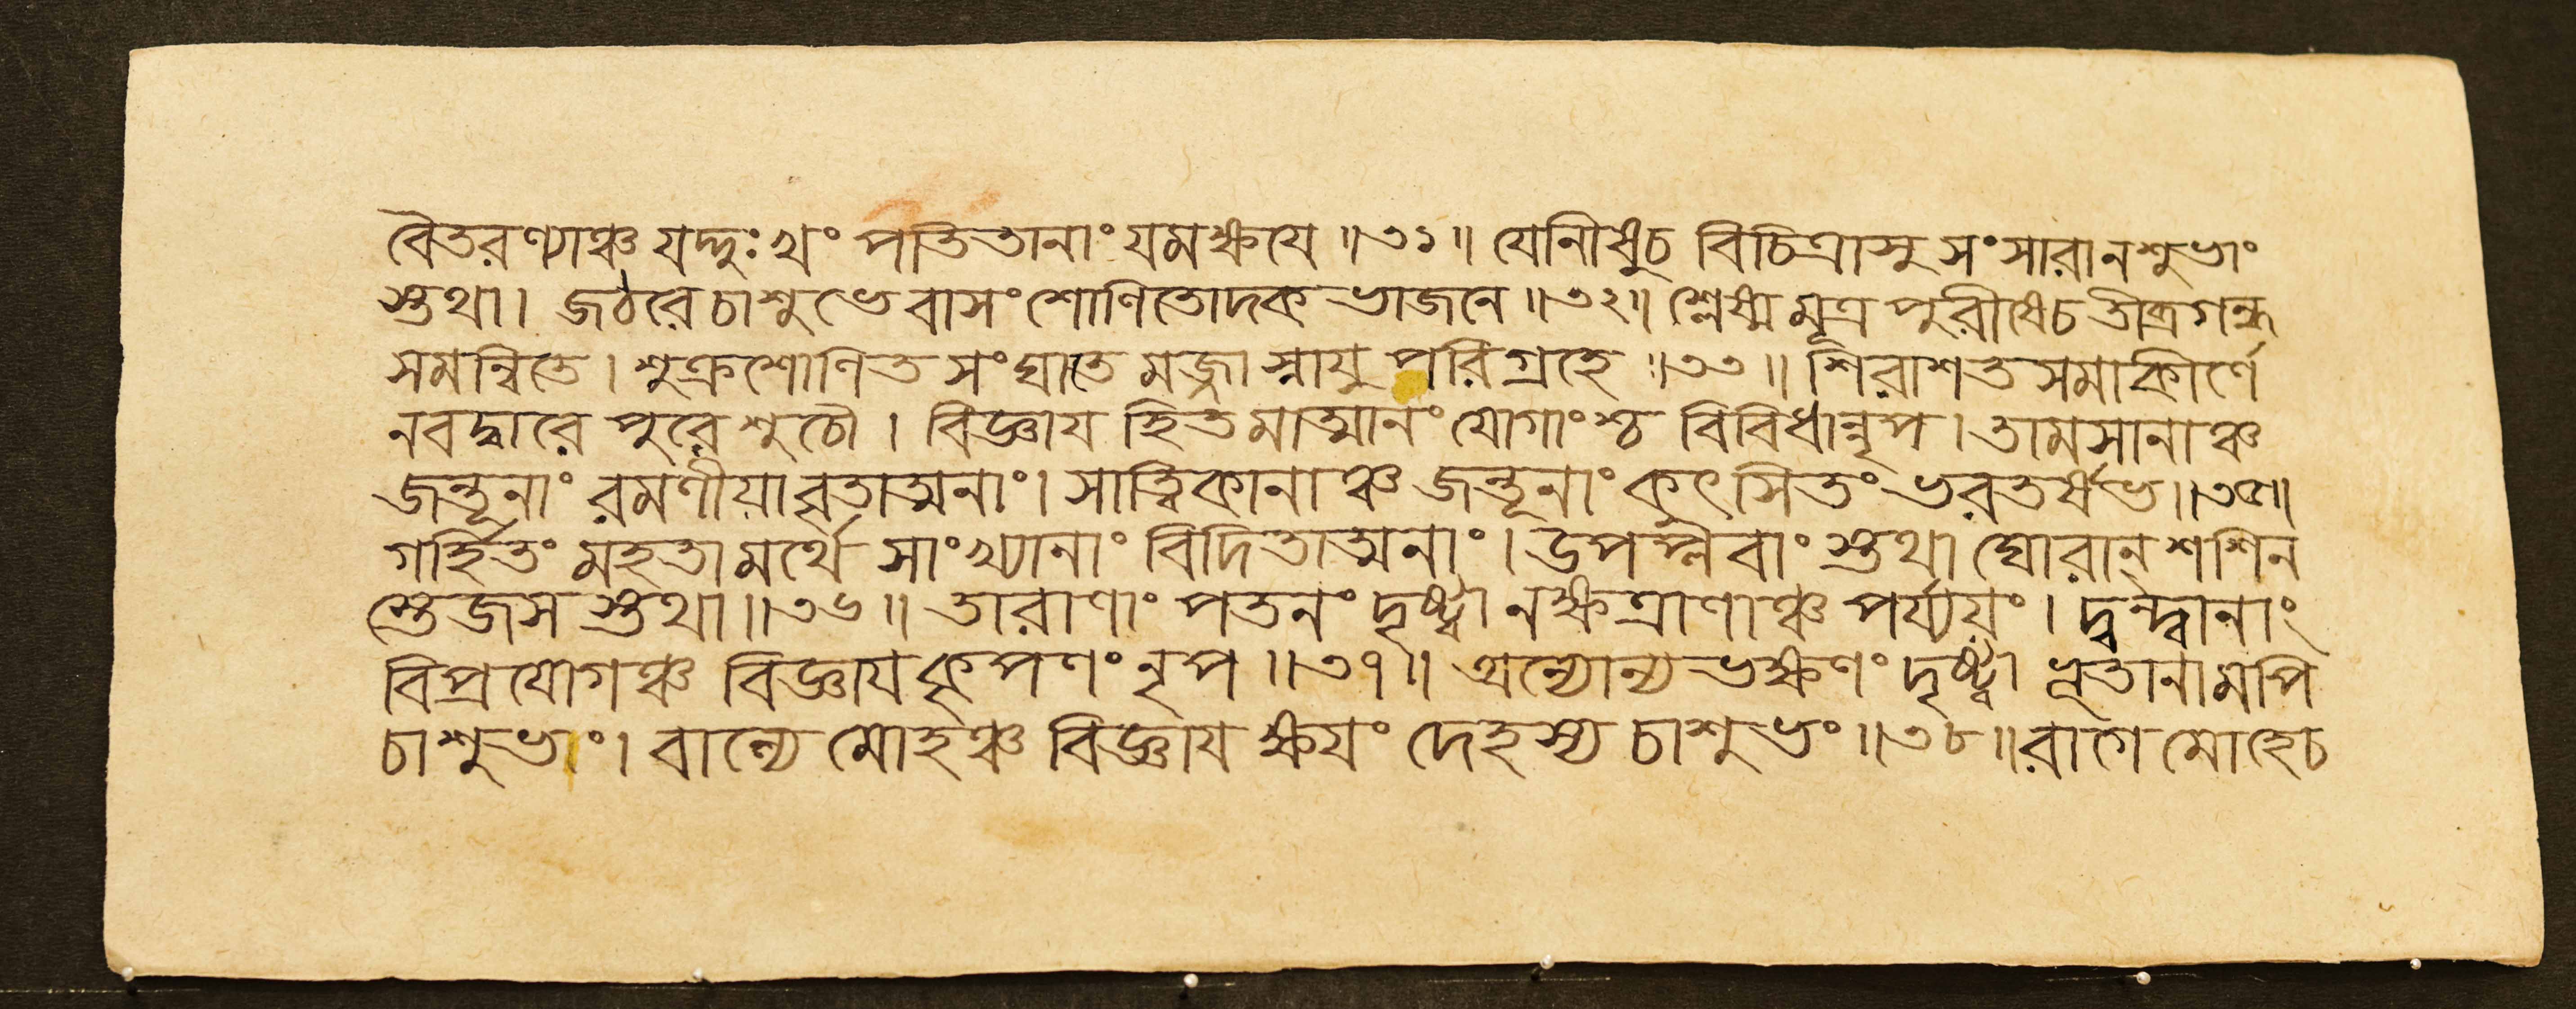 বৈতরণ্যাঞ্চ যদ্দুঃখং পতিতানাং যমক্ষযে ॥৩১॥ যোনীষুচ বিচিত্রাসু সংসারানশুভাং
স্তথা। জঠরে চাশুভে বাসং শোণিতোদক ভাজনে ॥৩২॥ শ্লেষ্ম মূত্র পুরীষেচ তীব্রগন্ধ
সমন্বিতে। শুক্রশোণিত সংঘাতে মজ্জা স্নাযু পরিগ্রহে ॥৩৩॥ শিরাশত সমাকীর্ণে
নবদ্বারে পুরে শুচৌ। বিজ্ঞায হিতমাত্মানং যোগাংশ্চ বিবিধান্নৃপ। তামসানাঞ্চ
জন্তূনাং রমণীয়াবৃতাত্মনাং। সাত্ত্বিকানাঞ্চ জন্তূনাং কুৎসিতং ভরতর্ষভ॥৩৫॥
গর্হিতং মহতামর্থে সাংখ্যানাং বিদিতাত্মনাং। উপপ্লবাং স্তথা ঘোরান্ শশিন
স্তেজস স্তথা॥৩৬॥ তারাণাং পতনং দৃষ্ট্বা নক্ষত্রাণাঞ্চ পর্য্যয়ং। দ্বন্দ্বানাং
বিপ্রযোগঞ্চ বিজ্ঞায কৃপণং নৃপ ॥৩৭॥ অন্যোন্য ভক্ষণং দৃষ্ট্বা ভূতানামপি
চাশুভাং। বাল্যে মোহঞ্চ বিজ্ঞায ক্ষযং দেহস্য চাশুভং॥৩৮॥রাগে মোহেচ